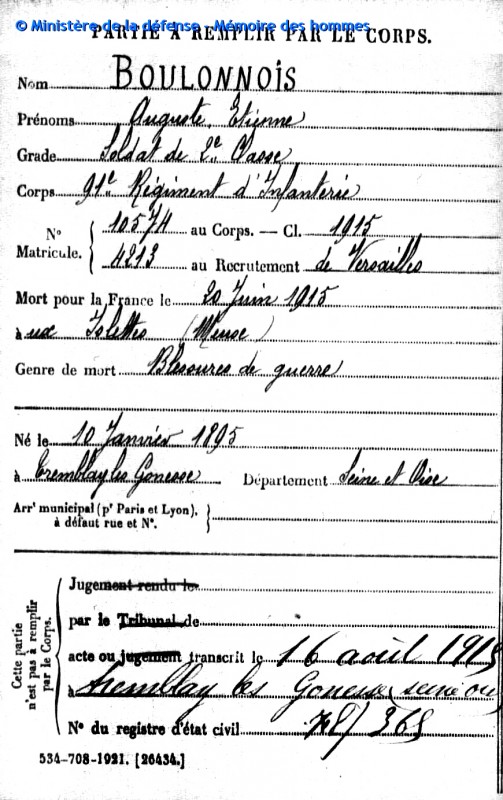 © Ministère de la défense - Mémoire des hommes
PARTIE À REMPLIR PAR LE CORPS.
Nom BOULONNOIS
Prénoms Auguste, Etienne
Grade Soldat de 2e Classe
Corps 91e Régiment d'Infanterie
N° Matricule. { 10574 au Corps. — Cl. 1915
4213 au Recrutement de Versailles
Mort pour la France le 20 Juin 1915
à ux Islettes (Meuse)
Genre de mort Blessures de guerre
Né le 10 Janvier 1895
à Tremblay les Gonesse Département Seine et Oise
Arrt municipal (pr Paris et Lyon), à défaut rue et N°. }
Cette partie n'est pas à remplir par le Corps.
Jugement rendu le
par le Tribunal de
acte ou jugement transcrit le 16 août 1915
à Tremblay les Gonesse
N° du registre d'état civil
534-708-1921. [26434.]